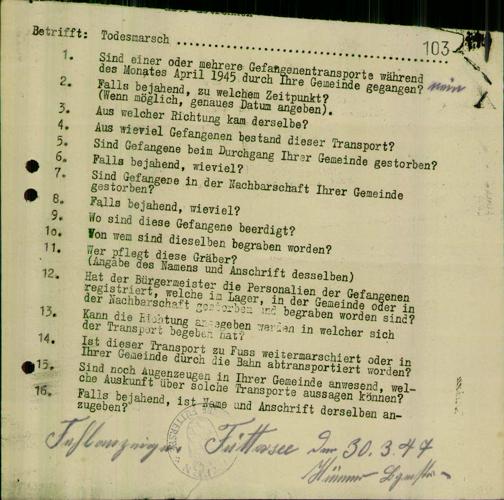 Betrifft: Todesmarsch ........................
103
1. Sind einer oder mehrere Gefangenentransporte während
des Monates April 1945 durch Ihre Gemeinde gegangen? nein
2. Falls bejahend, zu welchem Zeitpunkt?
(Wenn möglich, genaues Datum angeben).
3. Aus welcher Richtung kam derselbe?
4. Aus wieviel Gefangenen bestand dieser Transport?
5. Sind Gefangene beim Durchgang Ihrer Gemeinde gestorben?
6. Falls bejahend, wieviel?
7. Sind Gefangene in der Nachbarschaft Ihrer Gemeinde
gestorben?
8. Falls bejahend, wieviel?
9. Wo sind diese Gefangene beerdigt?
10. Von wem sind dieselben begraben worden?
11. Wer pflegt diese Gräber?
(Angabe des Namens und Anschrift desselben)
12. Hat der Bürgermeister die Personalien der Gefangenen
registriert, welche im Lager, in der Gemeinde oder in
der Nachbarschaft gestorben und begraben worden sind?
13. Kann die Richtung angegeben werden in welcher sich
der Transport begeben hat?
14. Ist dieser Transport zu Fuss weitermarschiert oder in
Ihrer Gemeinde durch die Bahn abtransportiert worden?
15. Sind noch Augenzeugen in Ihrer Gemeinde anwesend, wel-
che Auskunft über solche Transporte aussagen können?
16. Falls bejahend, ist Name und Anschrift derselben an-
zugeben?
Füttersee den 30.3.47